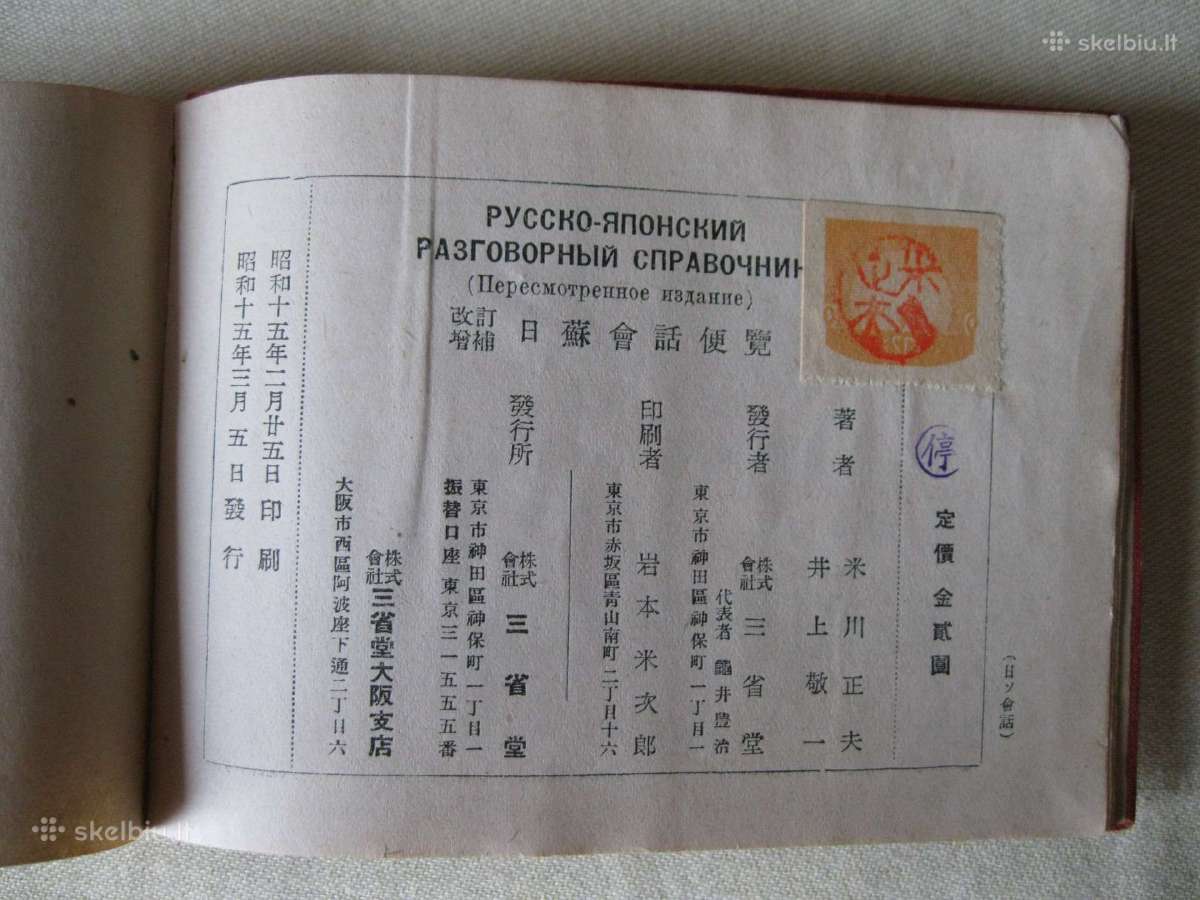 skelbiu.lt
РУССКО-ЯПОНСКИЙ
РАЗГОВОРНЫЙ СПРАВОЧНИК
(Пересмотренное издание)
改訂增補 日蘇會話便覽
停
定價金貳圓
著者
米川正夫
井上敬一
發行者
株式會社 三省堂
代表者 龜井豊治
東京市神田區神保町一丁目一
印刷者
岩本米次郎
東京市赤坂區青山南町二丁目十六
發行所
株式會社 三省堂
東京市神田區神保町一丁目一
振替口座 東京三一五五五番
株式會社 三省堂大阪支店
大阪市西區阿波座下通二丁目六
昭和十五年二月廿五日印刷
昭和十五年三月五日發行
(日ソ會話)
skelbiu.lt